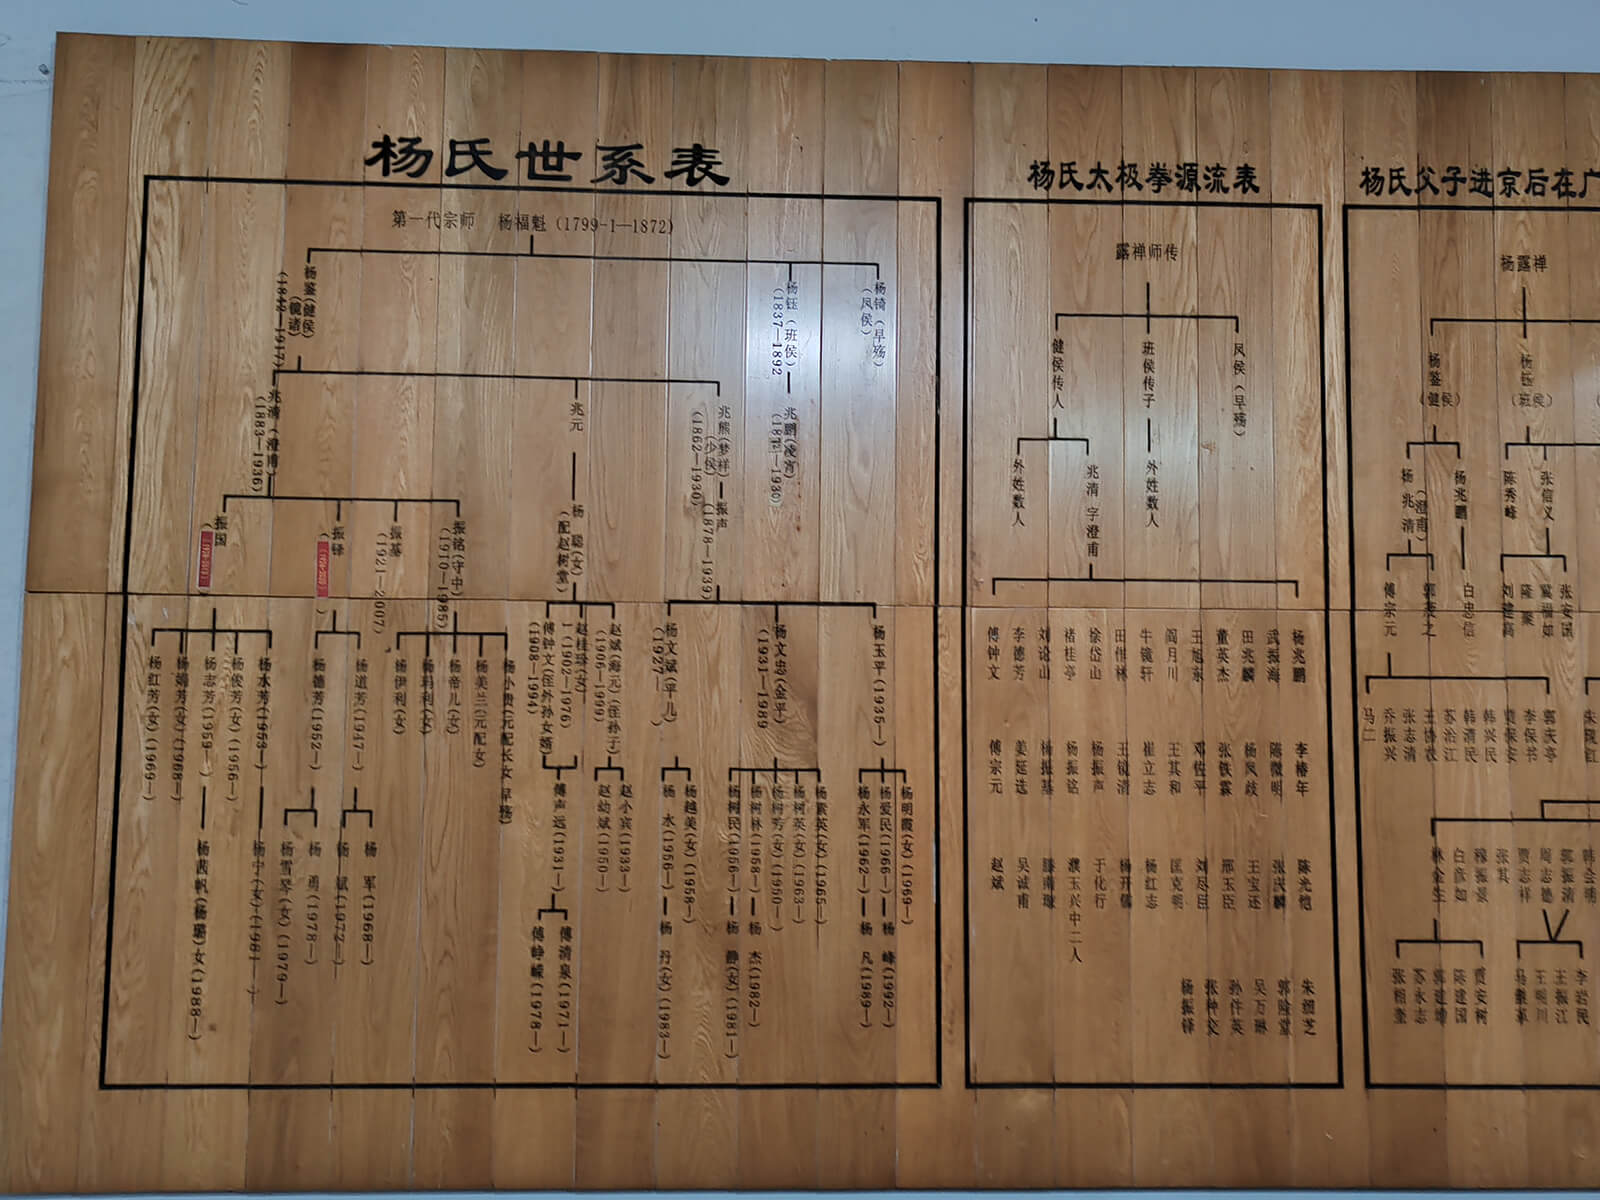 杨氏世系表
第一代宗师 杨福魁(1799-1—1872)
杨鉴(健侯)
(镜诸)
(1842—1917)
杨钰(班侯)
(1837—1892
杨锜(早殇)
(凤侯)
兆清(澄甫)
(1883—1936)
兆元
兆熊(梦祥)
(少侯)
(1862—1930)
兆鹏(凌霄)
振国
振铎
振基
(1921—2007)
振铭(守中)
(1910—1985)
杨聪(女)
(配赵树堂)
振声
(1878—1939)
杨红芳(女)(1969—)
杨志芳(1959—)
杨俊芳(女)(1956—)
杨德芳(1952—)
杨道芳(1947—)
杨伊利(女)
杨玛利(女)
杨帝儿(女)
杨美兰(元配女)
傅钟文(侄外孙女婿)
(1908—1994)
赵桂珍(女)
(1902—1976)
赵斌(海元)(侄孙子)
(1906—1999)
杨文斌(平儿)
(1927— )
杨文忠(金平)
(1931—1989
杨玉平(1935—)
杨茜帆(杨璐)女(1988—)
杨宁(女)(1981—)
杨雪琴(女)(1979—)
杨勇(1978—)
杨斌(1972—)
杨军(1968—)
傅声远(1931—)
赵幼斌(1950—)
赵小宾(1933—)
杨水(1956—)
杨越美(女)(1958—)
杨树民(1956—)
杨树林(1958—)
杨树芳(女)(1960—)
杨树英(女)(1963—)
杨素英(女)(1965—)
杨永军(1962—)
杨爱民(1966—)
杨明霞(女)(1969—)
傅峥嵘(1978—)
傅清泉(1971—)
杨丹(女)(1983—)
杨静(女)(1981—)
杨杰(1982—)
杨凡(1989—)
杨峰(1992—)
杨氏太极拳源流表
露禅师传
健侯传人
班侯传子
凤侯(早殇)
外姓数人
兆清 字澄甫
外姓数人
杨兆鹏
武振海
田兆麟
董英杰
王旭东
阎月川
牛镜轩
田作林
徐岱山
褚桂亭
刘论山
李德芳
傅钟文
李椿年
陈微明
杨凤歧
张铁霖
邓佐平
王其和
崔立志
王镜清
杨振声
杨振铭
杨振基
姜廷选
傅宗元
陈光恺
张庆麟
王宝还
邢玉臣
刘尽臣
匡克明
杨红志
杨开儒
于化行
濮玉兴中二人
滕南璇
吴诚甫
赵斌
朱纫芝
郭阴堂
吴万琳
孙件英
张种交
杨振铎
杨氏父子进京后在广
杨露禅
杨鉴
(健侯)
杨钰
(班侯)
杨兆清
(澄甫)
杨兆鹏
陈秀峰
张信义
傅宗元
白忠信
刘建高
隆聚
冀福如
张安国
马二
乔振兴
张志清
王协政
苏治江
韩清民
韩兴民
贾保安
李保书
郭庆亭
林金生
白彦如
穆振景
张其
贾志祥
周志德
郭振清
韩会明
张相奎
苏永志
郭建增
陈建国
贾安树
马徽革
王明川
王振江
李岩民